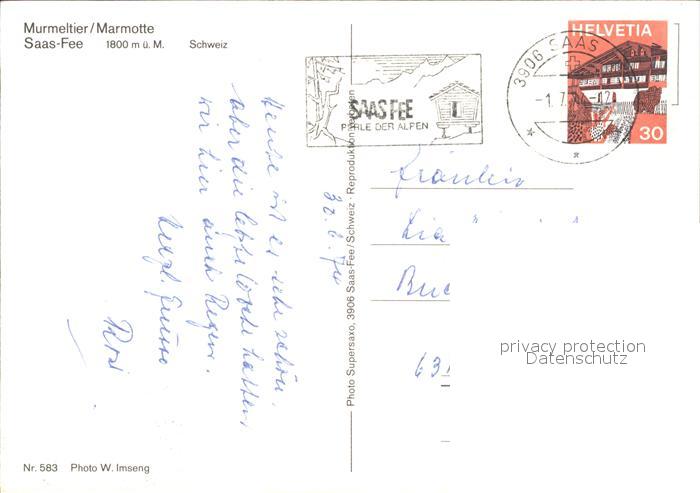 Murmeltier/Marmotte
Saas-Fee 1800 m ü. M. Schweiz
SAAS FEE
PERLE DER ALPEN
3906 SAAS
-1.7.
HELVETIA
30
Heute ist es sehr schön.
Aber die letzte Woche hatten
wir hier auch Regen.
Herzl. Grüsse
Rosi
Photo Supersaxo, 3906 Saas-Fee/Schweiz · Reproduktion
Fräulein
Lia
Buc
63
privacy protection
Datenschutz
Nr. 583 Photo W. Imseng